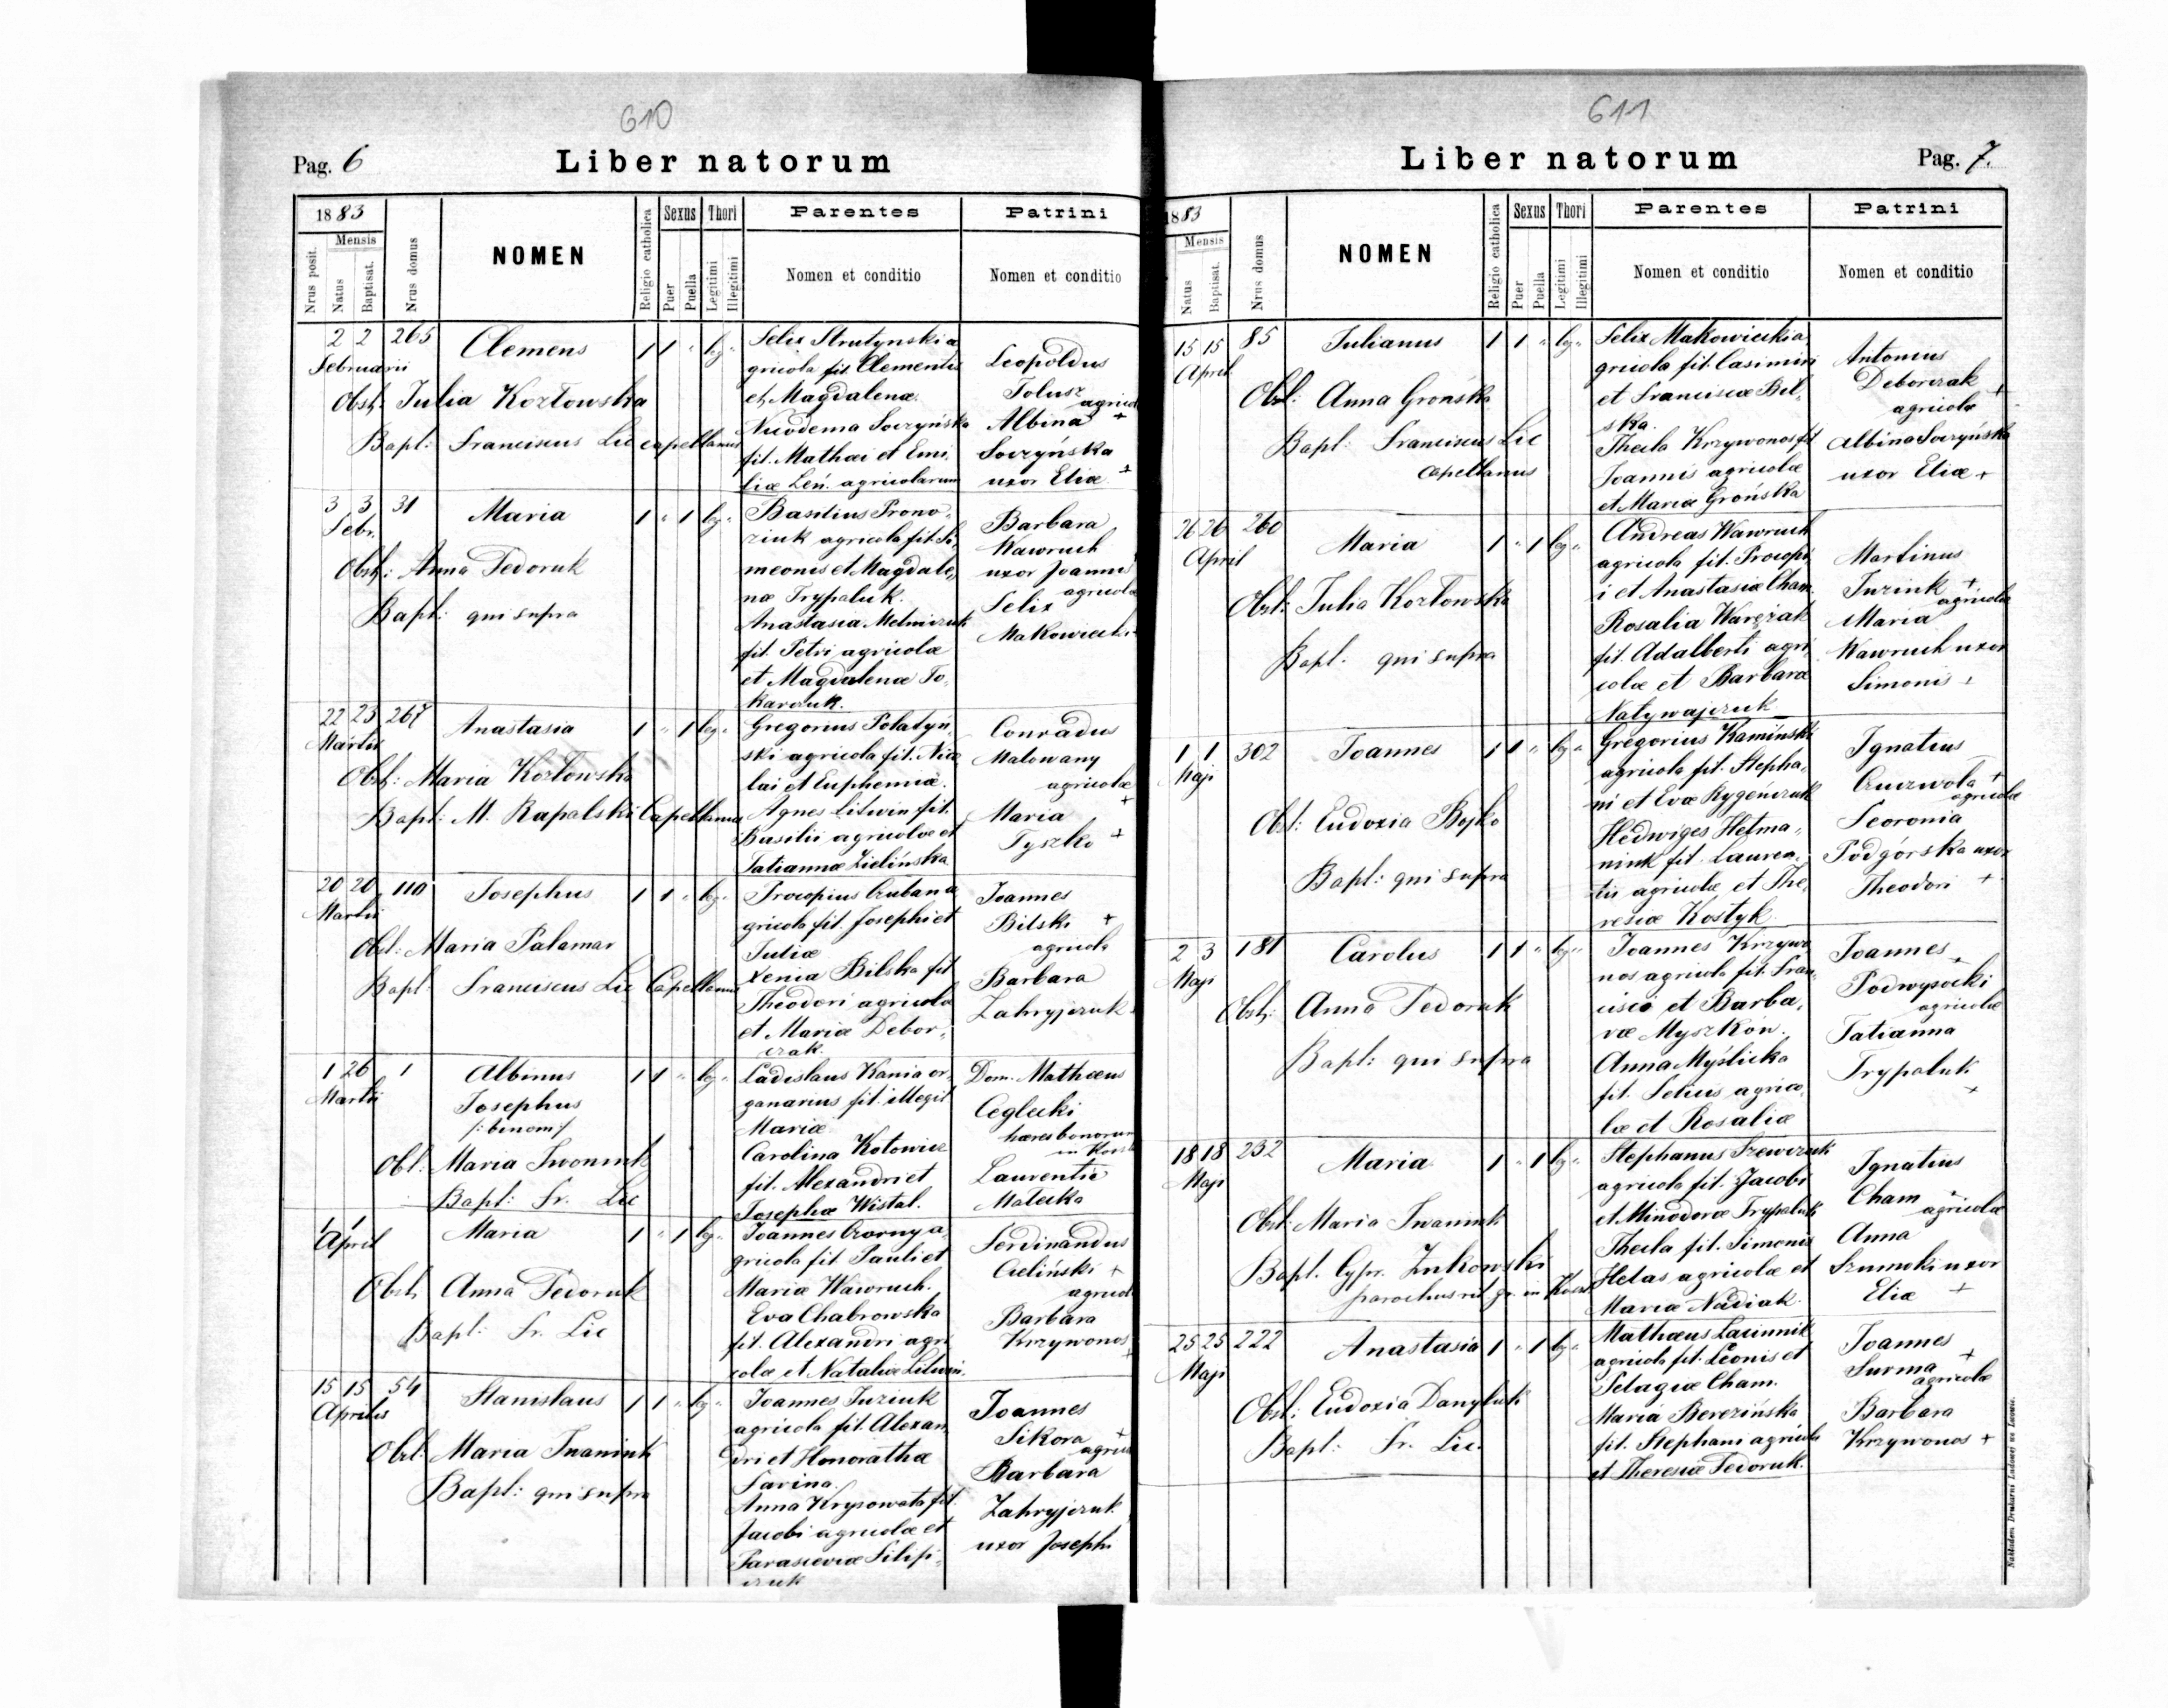 610
Pag. 6
Liber natorum
1883
Mensis
Nrus posit.
Natus
Baptisat.
Nrus domus
NOMEN
Religio catholica
Sexus
Puer
Puella
Thori
Legitimi
Illegitimi
Parentes
Nomen et conditio
Patrini
Nomen et conditio
2 2 265 Clemens 1 1 " leg "
Februarii
Obst: Julia Kozłowska
Bapt: Franciscus Lic capellanus
Felix Strutynski a
gricola fil. Clementis
et Magdalenæ.
Nicodema Soczyńska
fil. Mathæi et Emi
liæ Leń. agricolarum
Leopoldus
Tolusz
agricol
Albina +
Soczyńska
uxor Eliæ +
3 3 31 Maria 1 " 1 leg "
Febr.
Obst: Anna Fedoruk
Bapt: qui supra
Basilius Prono
ziuk agricola fil. Si
meonis et Magdale
næ Trypaluk.
Anastasia Melniczuk
fil. Petri agricolæ
et Magdalenæ To
karczuk.
Barbara
Wawruch
uxor Joannis
agricolæ
Felix
Makowiecki +
22 23 267 Anastasia 1 " 1 leg "
Martii
Obst: Maria Kozłowska
Bapt: M. Rapalski Capellanus
Gregorius Połatyń
ski agricola fil. Nico
lai et Euphemiæ.
Agnes Litwin fil.
Basilii agricolæ et
Tatiannæ Zielińska
Conradus
Malowany
agricolæ
Maria +
Tyszko +
20 20 110 Josephus 1 1 " leg "
Martii
Obst: Maria Palamar
Bapt: Franciscus Lic Capellanus
Procopius Czuban a
gricola fil. Josephi et
Juliæ
Xenia Bilska fil
Theodori agricolæ
et Mariæ Debor
czak.
Joannes
Bilski +
agricola
Barbara
Zahryjczuk
1 26 1 Albinus 1 1 " leg "
Martii
Josephus
/: binom :/
Obst: Maria Iwoniuk
Bapt: Fr. Lic
Ladislaus Kania or
ganarius fil. illegit
Mariæ
Carolina Kotowicz
fil. Alexandri et
Josephæ Wistal.
Dom. Mathæus
Ceglecki
hæres bonorum
Laurentia
Małecka
1 1 Maria 1 " 1 leg "
April
Obst. Anna Fedoruk
Bapt: Fr. Lic
Joannes Czorny a
gricola fil. Pauli et
Mariæ Wawruch.
Eva Chabrowska
fil. Alexandri agri
colæ et Nataliæ Litwin.
Ferdinandus
Cieliński +
agricol
Barbara
Krzywonos
15 15 54 Stanislaus 1 1 " leg "
Aprilis
Obst: Maria Iwaniuk
Bapt: qui supra
Joannes Juziuk
agricola fil. Alexan
dri et Honorathæ
Farina.
Anna Krysowata fil.
Jacobi agricolæ et
Parasceviæ Filip
czuk
Joannes
Sikora +
agricol
Barbara
Zahryjczuk
uxor Josephi
611
Liber natorum
Pag. 7.
1883
Mensis
Natus
Baptisat.
Nrus domus
NOMEN
Religio catholica
Sexus
Puer
Puella
Thori
Legitimi
Illegitimi
Parentes
Nomen et conditio
Patrini
Nomen et conditio
15 15 85 Julianus 1 1 " leg "
April
Obst: Anna Grońska
Bapt: Franciscus Lic
capellanus
Felix Makowiecki a
gricola fil. Casimiri
et Franciscæ Bil
ska.
Thecla Krzywonos fil
Joannis agricolæ
et Mariæ Grońska
Antonius
Deborczak +
agricolæ
Albina Soczyńska
uxor Eliæ +
26 26 260 Maria 1 " 1 leg "
April
Obst: Julia Kozłowska
Bapt. qui supra
Andreas Wawruch
agricola fil. Procopi
i et Anastasiæ Cham
Rosalia Warczak
fil. Adalberti agri
colæ et Barbaræ
Nalywajczuk
Martinus
Juziuk +
agricolæ
Maria
Wawruch uxor
Simonis +
1 1 302 Joannes 1 1 " leg "
Maji
Obst: Eudoxia Bojko
Bapt: qui supra
Gregorius Kamiński
agricola fil. Stepha
ni et Evæ Rygenczuk
Hedwiges Hetma
niuk fil. Lauren
tii agricolæ et The
resiæ Kostyk.
Ignatius
Czuczwola +
agricolæ
Feoronia
Podgórska uxor
Theodori +
2 3 181 Carolus 1 1 " leg "
Maji
Obst: Anna Fedoruk
Bapt: qui supra
Joannes Krzywo
nos agricola fil. Fran
cisci et Barba
ræ Myszków.
Anna Myślicka
fil. Felicis agrico
læ et Rosaliæ
Joannes +
Podwysocki
agricolæ
Tatianna
Trypaluk
+
18 18 232 Maria 1 " 1 leg "
Maji
Obst: Maria Iwaniuk
Bapt. Cypr. Żukowski
parochus rit. gr. in
Stephanus Szewczuk
agricola fil. Jacobi
et Minodoræ Trypaluk
Thecla fil. Simonis
Helas agricolæ et
Mariæ Nadiak.
Ignatius
Cham +
agricolæ
Anna
Szumski uxor
Eliæ +
25 25 222 Anastasia 1 " 1 leg "
Maji
Obst: Eudoxia Danyluk
Bapt: Fr. Lic.
Mathæus Lacinnik
agricola fil. Leonis et
Pelagiæ Cham.
Maria Berezińska
fil. Stephani agricolæ
et Theresiæ Fedoruk.
Joannes
Surma +
agricolæ
Barbara
Krzywonos +
Nakładem Drukarni Ludowej we Lwowie.